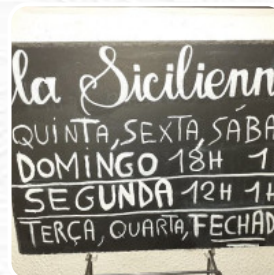 la Sicilienn
QUINTA, SEXTA, SÁBA
DOMINGO 18H 1
SEGUNDA 12H 1H
TERÇA, QUARTA, FECHAD